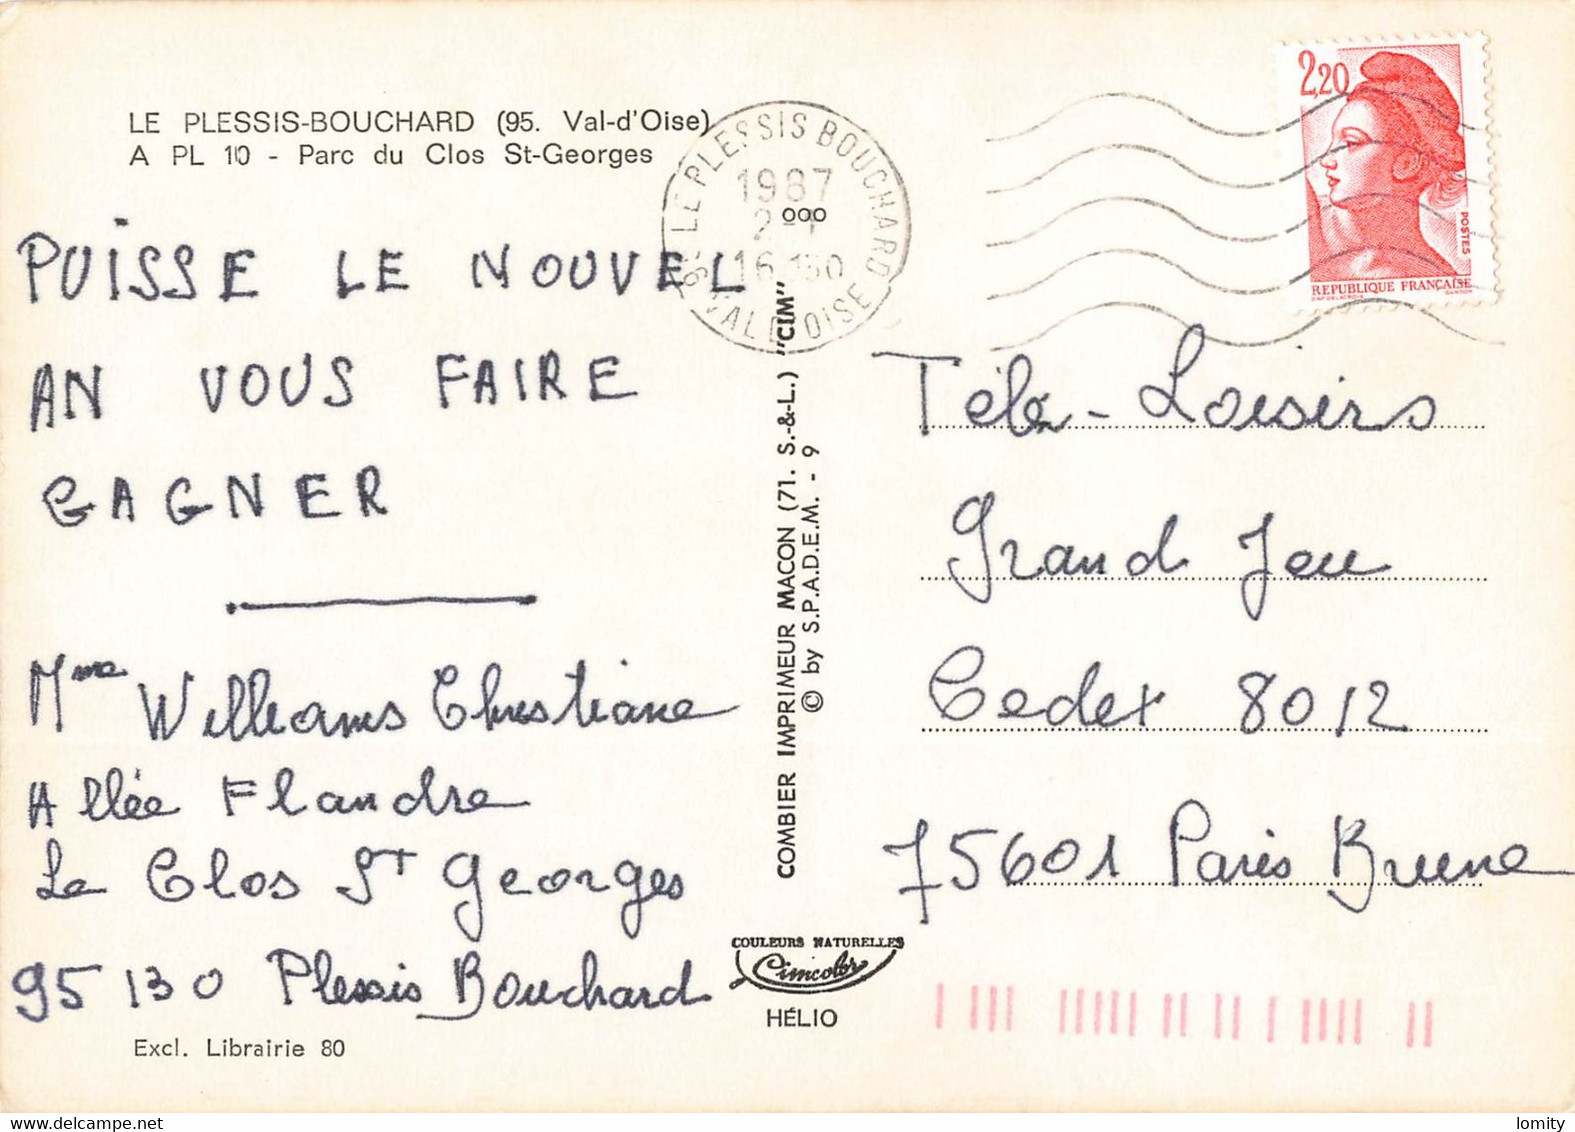 LE PLESSIS-BOUCHARD (95. Val-d'Oise)
A PL 10 - Parc du Clos St-Georges
PUISSE LE NOUVEL
AN VOUS FAIRE
GAGNER
Mme Williams Christiane
Allée Flandre
Le Clos St Georges
95130 Plessis Bouchard
Excl. Librairie 80
LE PLESSIS BOUCHARD
1987
VAL D'OISE
COMBIER IMPRIMEUR MACON (71. S.-&-L.) "CIM"
© by S.P.A.D.E.M. - 9
COULEURS NATURELLES
Cimcolor
HÉLIO
2,20
POSTES
REPUBLIQUE FRANÇAISE
Télé-Loisirs
Grand Jeu
Cedex 8012
75601 Paris Brune
lomity